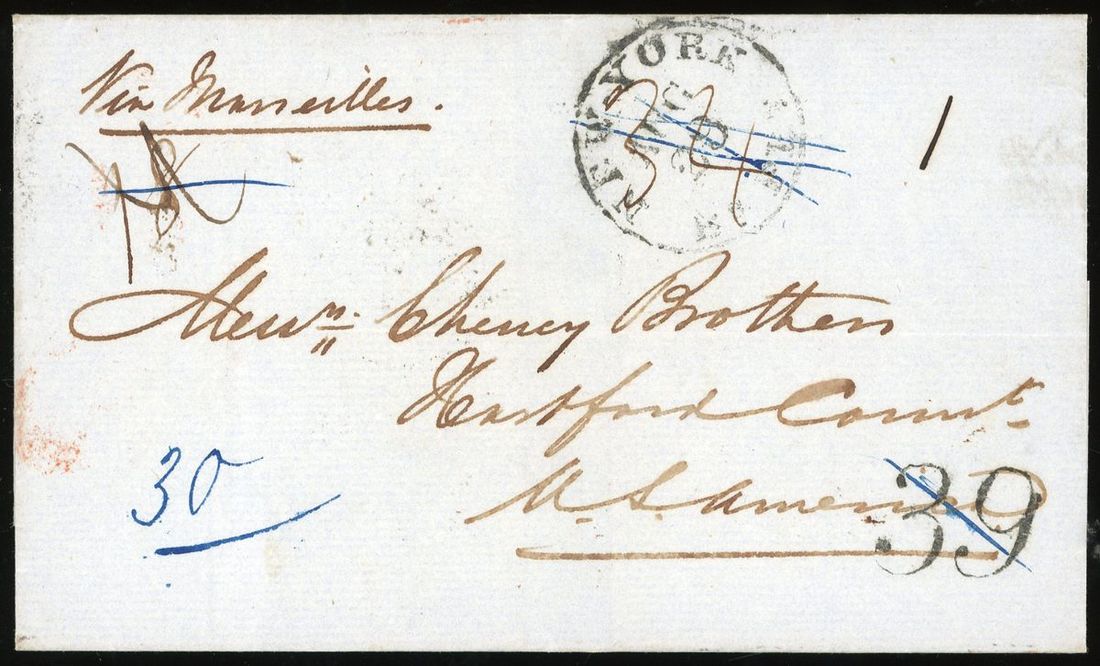 Via Marseilles.
NEW YORK
AUG
29
34
1
Messrs. Cheney Brothers
Hartford Connt.
U.S. America
30
39